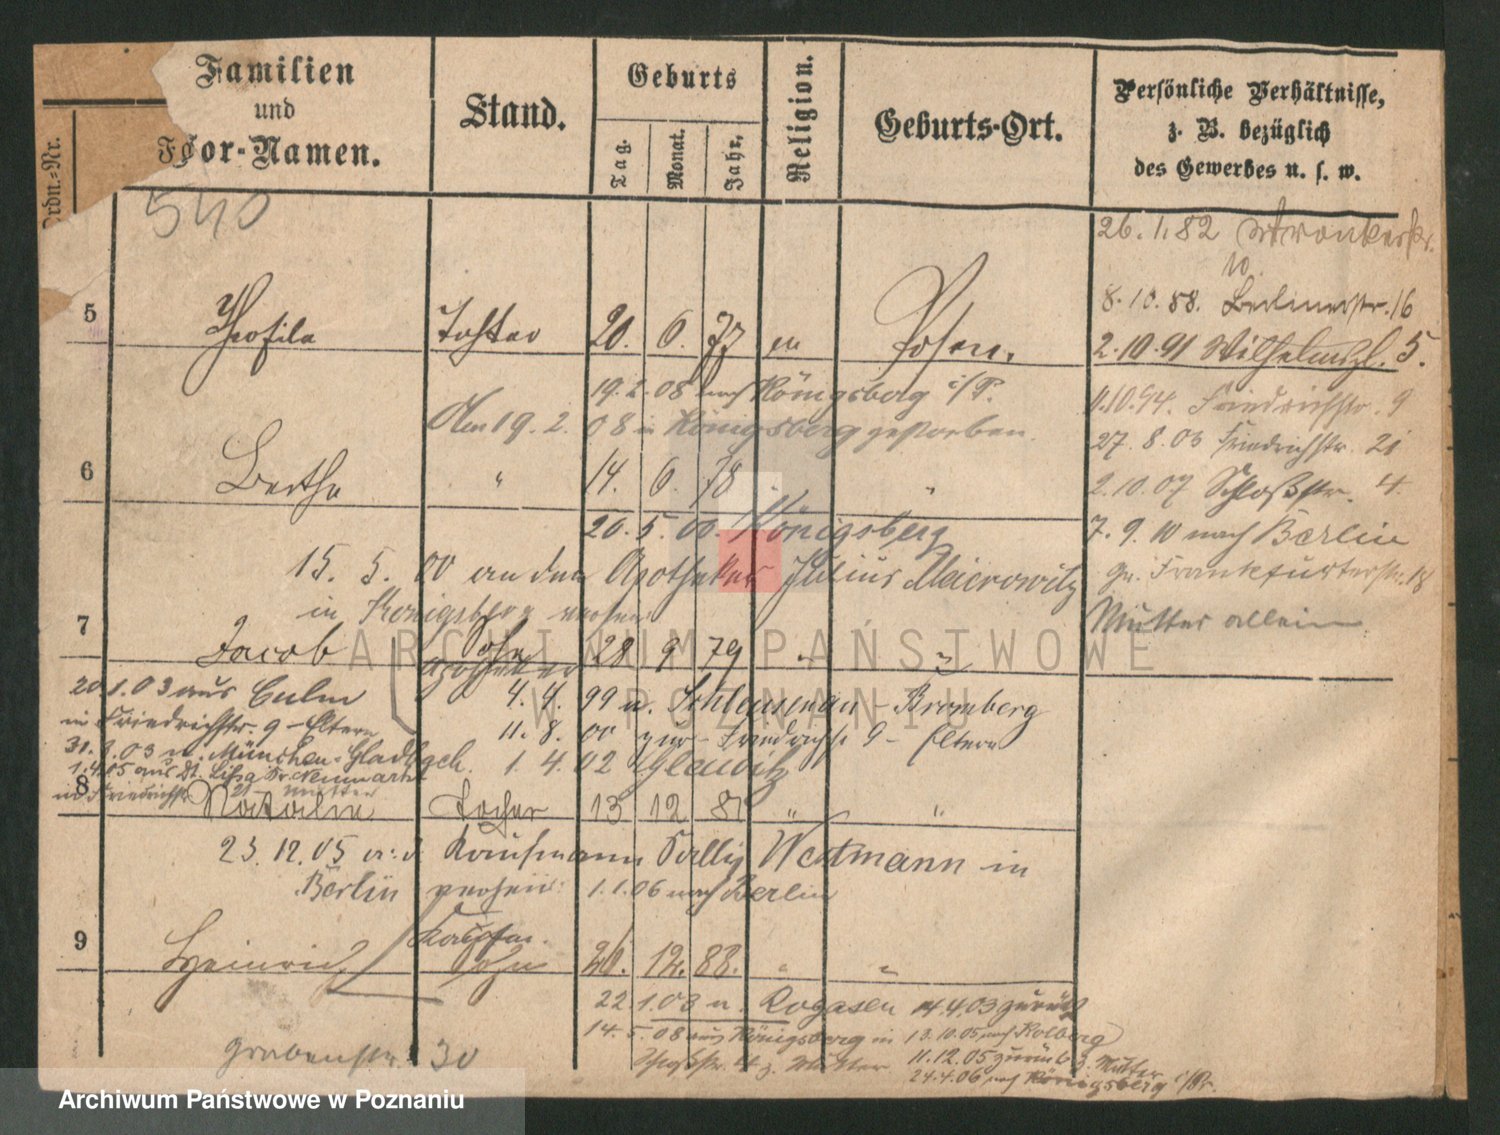 Familien
und
Vor-Namen.
Stand.
Geburts
Tag.
Monat.
Jahr.
Religion.
Geburts-Ort.
Persönliche Verhältnisse,
z. B. bezüglich
des Gewerbes u. s. w.
Ordn.-Nr.
540
26. 1. 82 Wronkerstr.
10.
8. 10. 88. Berlinerstr. 16
5 Theofila Tochter 20. 6. 77 Posen.
2. 10. 91 Wilhelmspl. 5.
19. 2. 08 nach Königsberg i/P.
1.10.94. Friedrichstr. 9
Am 19. 2. 08 in Königsberg gestorben.
27. 8. 03 Friedrichstr. 21
6 Bertha " 14. 6. 78 "
2. 10. 07 Schloßstr. 4.
20. 5. 00. Königsberg
7. 9. 10 nach Berlin
15. 5. 00 an den Apotheker Julius Meierowitz
Frankfurterstr. 18
in Königsberg
Mutter allein
7 Jacob Sohn 28 9 79 "
Apotheker
20.1.03 aus Culm
4. 4. 99 n. Schleusenau - Bromberg
in Friedrichstr. 9 - Eltern
11. 8. 00 zur - Friedrichstr 9 - Eltern
31. 3. 03 n. München-Gladbach.
1. 4. 02 Gleiwitz
1.4.05 aus Dt. Lissa Kr. Neumarkt
in Friedrichstr 21 Mutter
8 Natalie Tochter 13 12 81 " "
23. 12. 05 a. d. Kaufmann Sally Westmann in
Berlin verheir: 1. 1. 06 nach Berlin
9 Heinrich Sohn 26. 12. 88. " "
22. 1. 03 n. Rogasen 4.4.03 zurück
14. 5. 08 aus Königsberg in
13.10.05 nach Kolberg
Schloßstr. 4 z. Mutter
11. 12. 05 zurück z. Mutter
24.4.06 nach Königsberg i/Pr.
Grabenstr. 30
ARCHIWUM PAŃSTWOWE
W POZNANIU
Archiwum Państwowe w Poznaniu